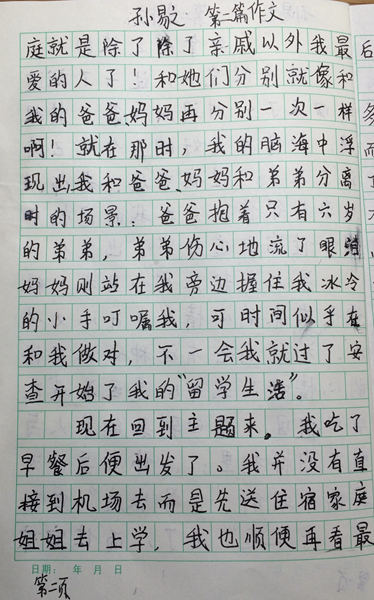 孙易文：第二篇作文
庭就是除了除了亲戚以外我最
爱的人了！和她们分别就像和
我的爸爸、妈妈再分别一次一样
啊！就在那时，我的脑海中浮
现出我和爸爸、妈妈和弟弟分离
时的场景：爸爸抱着只有六岁
的弟弟，弟弟伤心地流了眼泪
妈妈则站在我旁边握住我冰冷
的小手叮嘱我，可时间似乎在
和我做对，不一会我就过了安
查开始了我的“留学生活”。
现在回到主题来。我吃了
早餐后便出发了。我并没有直
接到机场去而是先送住宿家庭
姐姐去上学，我也顺便再看最
日期： 年 月 日
第二页